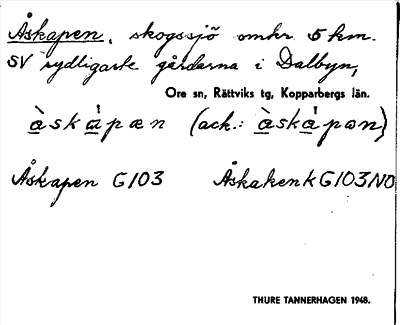 Åskapen, skogssjö omkr 5 km.
SV sydligaste gårdarna i Dalbyn,
Ore sn, Rättviks tg, Kopparbergs län.
àskàpæn (ack.: àskàpæn)
Åskapen G103 ÅskakenkG103NO
THURE TANNERHAGEN 1948.